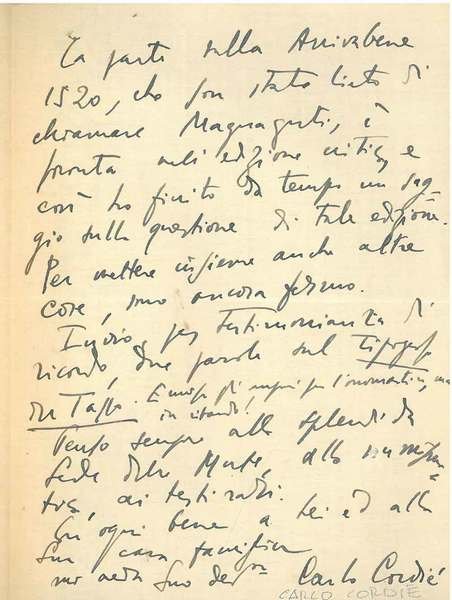 La parte sulla Arrivabene
1520, che son stato lieto di
chiamare Magnaguti, è
pronta nell'edizione critica, e
così ho finito da tempo un sag-
gio sulla questione di tale edizione.
Per mettere insieme anche altre
cose, sono ancora fermo.
Invio, per testimonianza di
ricordo, due parole sul Tipografo
del Tasso. E invio gli auguri per l'onomastico, ma
in ritardo!
Penso sempre alla splendida
sede delle Monete, alla numisma-
tica, ai testi rari.
Un ogni bene a Lei ed alla
Sua cara famiglia
mi creda Suo dev.mo Carlo Cordié
CARLO CORDIÈ